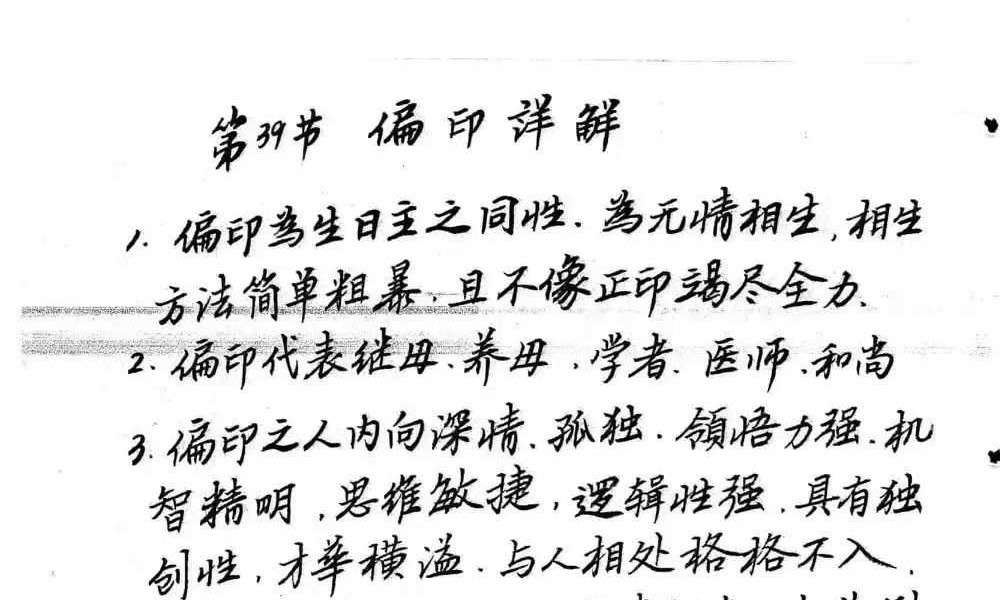 第39节 偏印詳解
1. 偏印為生日主之同性. 為无情相生, 相生
方法简单粗暴. 且不像正印竭尽全力.
2. 偏印代表继母. 养母. 学者. 医师. 和尚
3. 偏印之人内向深情. 孤独. 領悟力强. 机
智精明, 思维敏捷, 逻辑性强. 具有独
创性, 才华横溢. 与人相处格格不入.